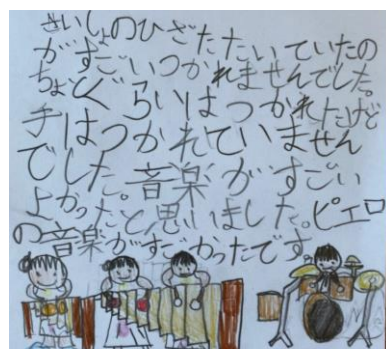 さいしょのひざたたいていたの
がすごいつかれませんでした。
ちょとぐらいはつかれたけど
手はつかれていません
でした。音楽がすごい
よかったと思いました。ピエロ
の音楽がすごかったです